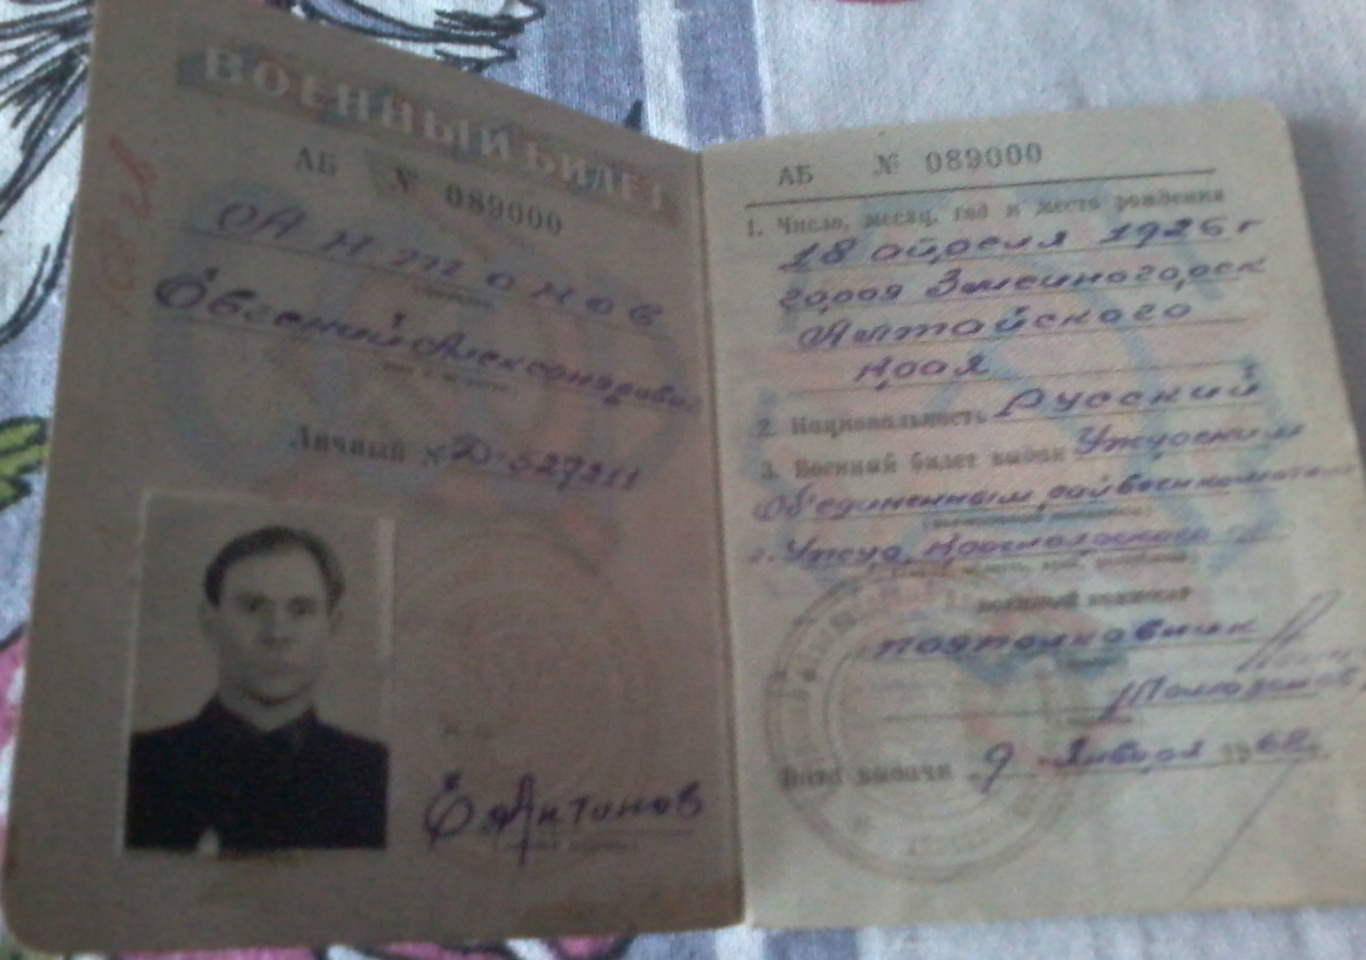 ВОЕННЫЙ БИЛЕТ
АБ № 089000
Антонов
Евгений Александрович
Личный № Д-527211
Е Антонов
АБ № 089000
1. Число, месяц, год и место рождения
18 апреля 1926 г
город Змеиногорск
Алтайского
края
2. Национальность Русский
3. Военный билет выдан Ужурским
Объединенным райвоенкоматом
г. Ужур, Красноярского
военный комиссар
подполковник
Дата выдачи 9 Января 1968 г.